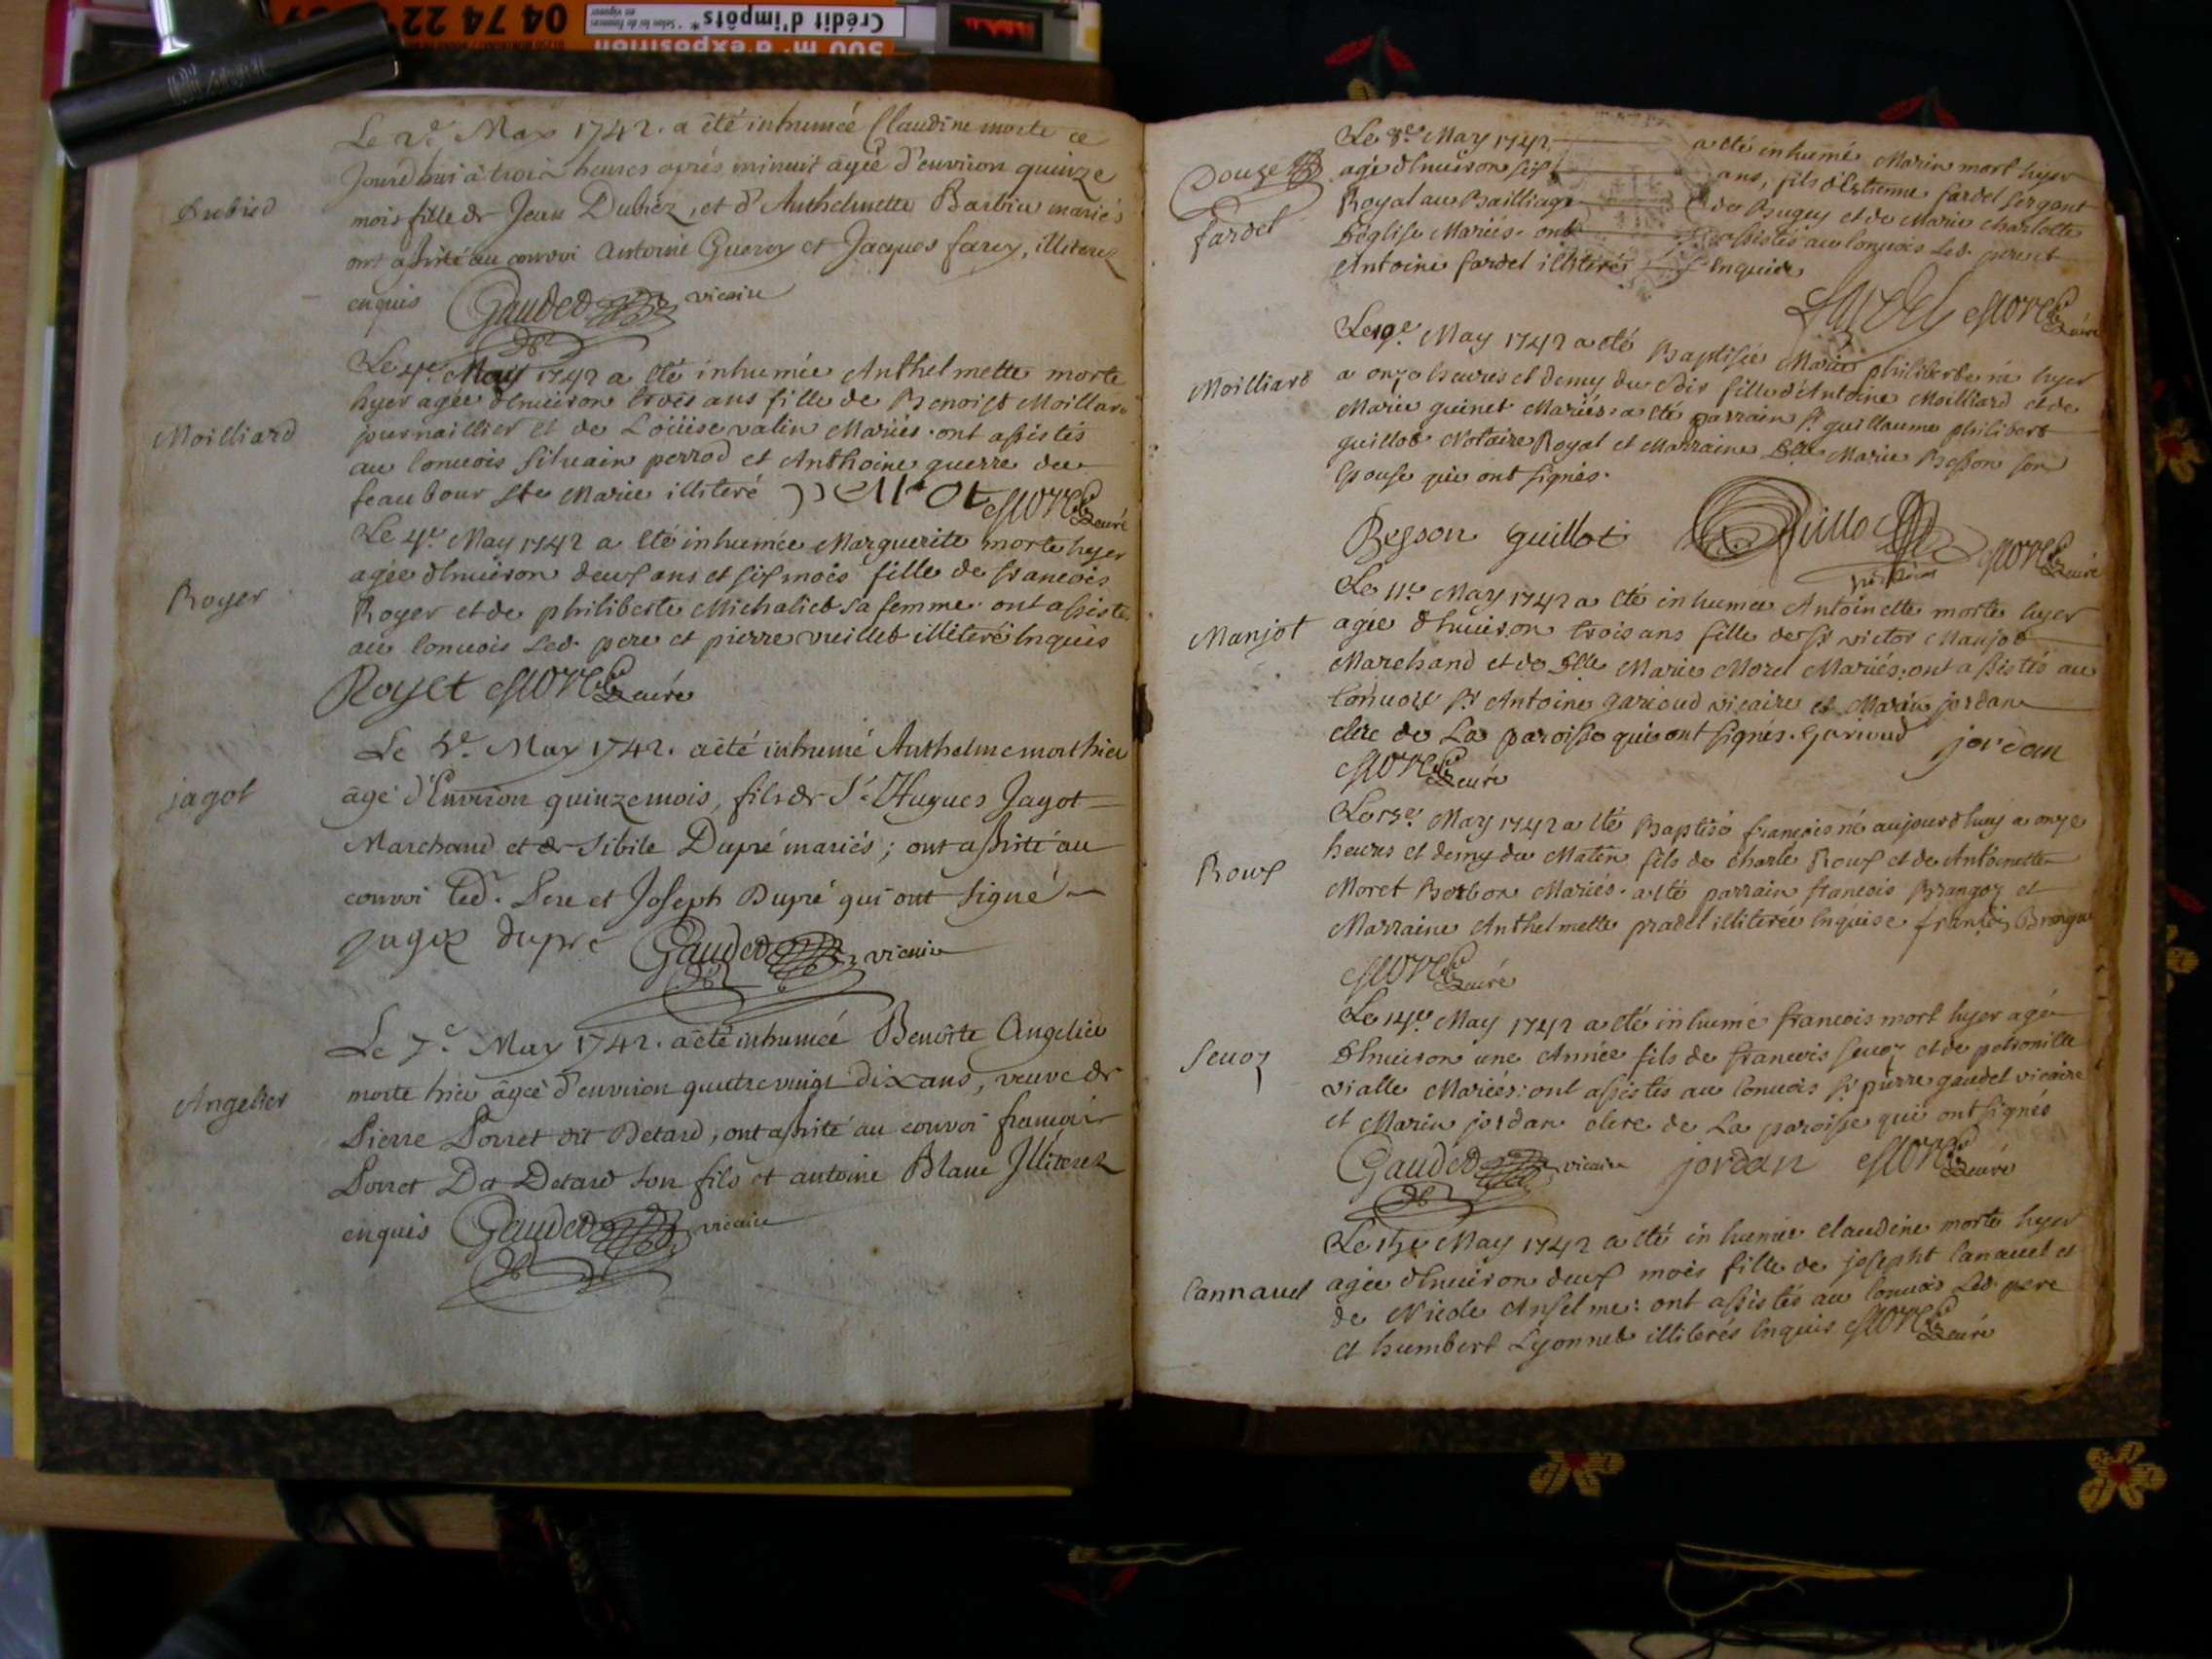 500 m² d'exposition
Crédit d'impôts*
* Selon loi de finances
en vigueur
04 74 22
Dubied
Le 2e. May 1742. a été inhumée Claudine morte ce
Jourd'hui à trois heures après minuit agée d'environ quinze
mois fille de Jean Dubiez, et d'Anthelmette Barbier mariés
ont assisté au convoi Antoine Gueroy et Jacques farcy, illiterez
enquis Gaudet vicaire
Moilliard
Le 4e. May 1742 a été inhumée Anthelmette morte
hyer agée d'Enuiron trois ans fille de Benoist Moillard
journaillier et de Loüise vatin Mariés. ont assistés
au Conuois Siluain perrod et Anthoine guerre du
feaubour Ste Marie illiteré perrot Morel curé
Royer
Le 4e. May 1742 a été inhumée Marguerite morte hyer
agée d'Enuiron deux ans et six mois fille de francois
Royer et de philiberte Michalied sa femme. ont assisté
au Conuois Led. pere et pierre vieilled illiteré Enquis
Royet Morel curé
jagot
Le 5e. May 1742. a été inhumé Anthelme mort hier
âgé d'Environ quinze mois, fils de Sr. Hugues Jagot
Marchand et de Sibile Dupré mariés; ont assisté au
convoi led. Pere et Joseph Dupré qui ont signé
jagot dupré Gaudet vicaire
Angelier
Le 7e. May 1742. a été inhumée Benoîte Angelier
morte hier âgée d'environ quatre vingt dix ans, veuve de
Pierre Porret dit Detard, ont assisté au convoi francois
Porret Dit Detard son fils et antoine Blanc Illiterez
enquis Gaudet vicaire
Douze
fardel
Le 8e. May 1742 a été inhumé Marin mort hyer
agé d'Enuiron six ans, fils d'Estienne fardel sergent
Royal au Bailliage de Bugey et de Marie charlotte
Deglise Mariés. ont assistés au Conuois Led. pere et
Antoine fardel illiteré Enquis
fardel Morel curé
Moilliard
Le 10e. May 1742 a été Baptisée Marie philiberte né hyer
a onze heures et demy du soir fille d'Antoine Moilliard et de
Marie guinet Mariés. a été parrain sr. guillaume philibert
guillot Notaire Royal et Marraine Dlle Marie Besson son
Epouse qui ont signés.
Besson guillot Guillot Morel curé
Manjot
Le 11e. May 1742 a été inhumée Antoinette morte hyer
agée d'Enuiron trois ans fille de sr victor Manjot
Marchand et de Dlle Marie Morel Mariés: ont assistés au
Conuois sr Antoine garioud vicaire et Marin jordan
clerc de La paroisse qui ont signés. Garioud jordan
Morel curé
Roux
Le 13e. May 1742 a été Baptisé francois né aujourd'huy a onze
heures et demy du Matin fils de charle Roux et de Antoinette
Moret Borbon Mariés. a été parrain francois Brangoz et
Marraine Anthelmette pradel illiterée Enquise françois Brango
Morel curé
Seuoz
Le 14e. May 1742 a été inhumé francois mort hyer agé
d'Enuiron une Année fils de francois seuoz et de petronille
vialle Mariés: ont assistés au Conuois sr. pierre gaudet vicaire
et Marin jordan clerc de La paroisse qui ont signés
Gaudet vicaire jordan Morel curé
Cannauel
Le 15e May 1742 a été inhumée claudine morte hyer
agée d'Enuiron deux mois fille de josepht Canauel et
de Nicole Anselme: ont assistés au Conuois Led. pere
et humbert Lyonnet illiterés Enquis Morel curé